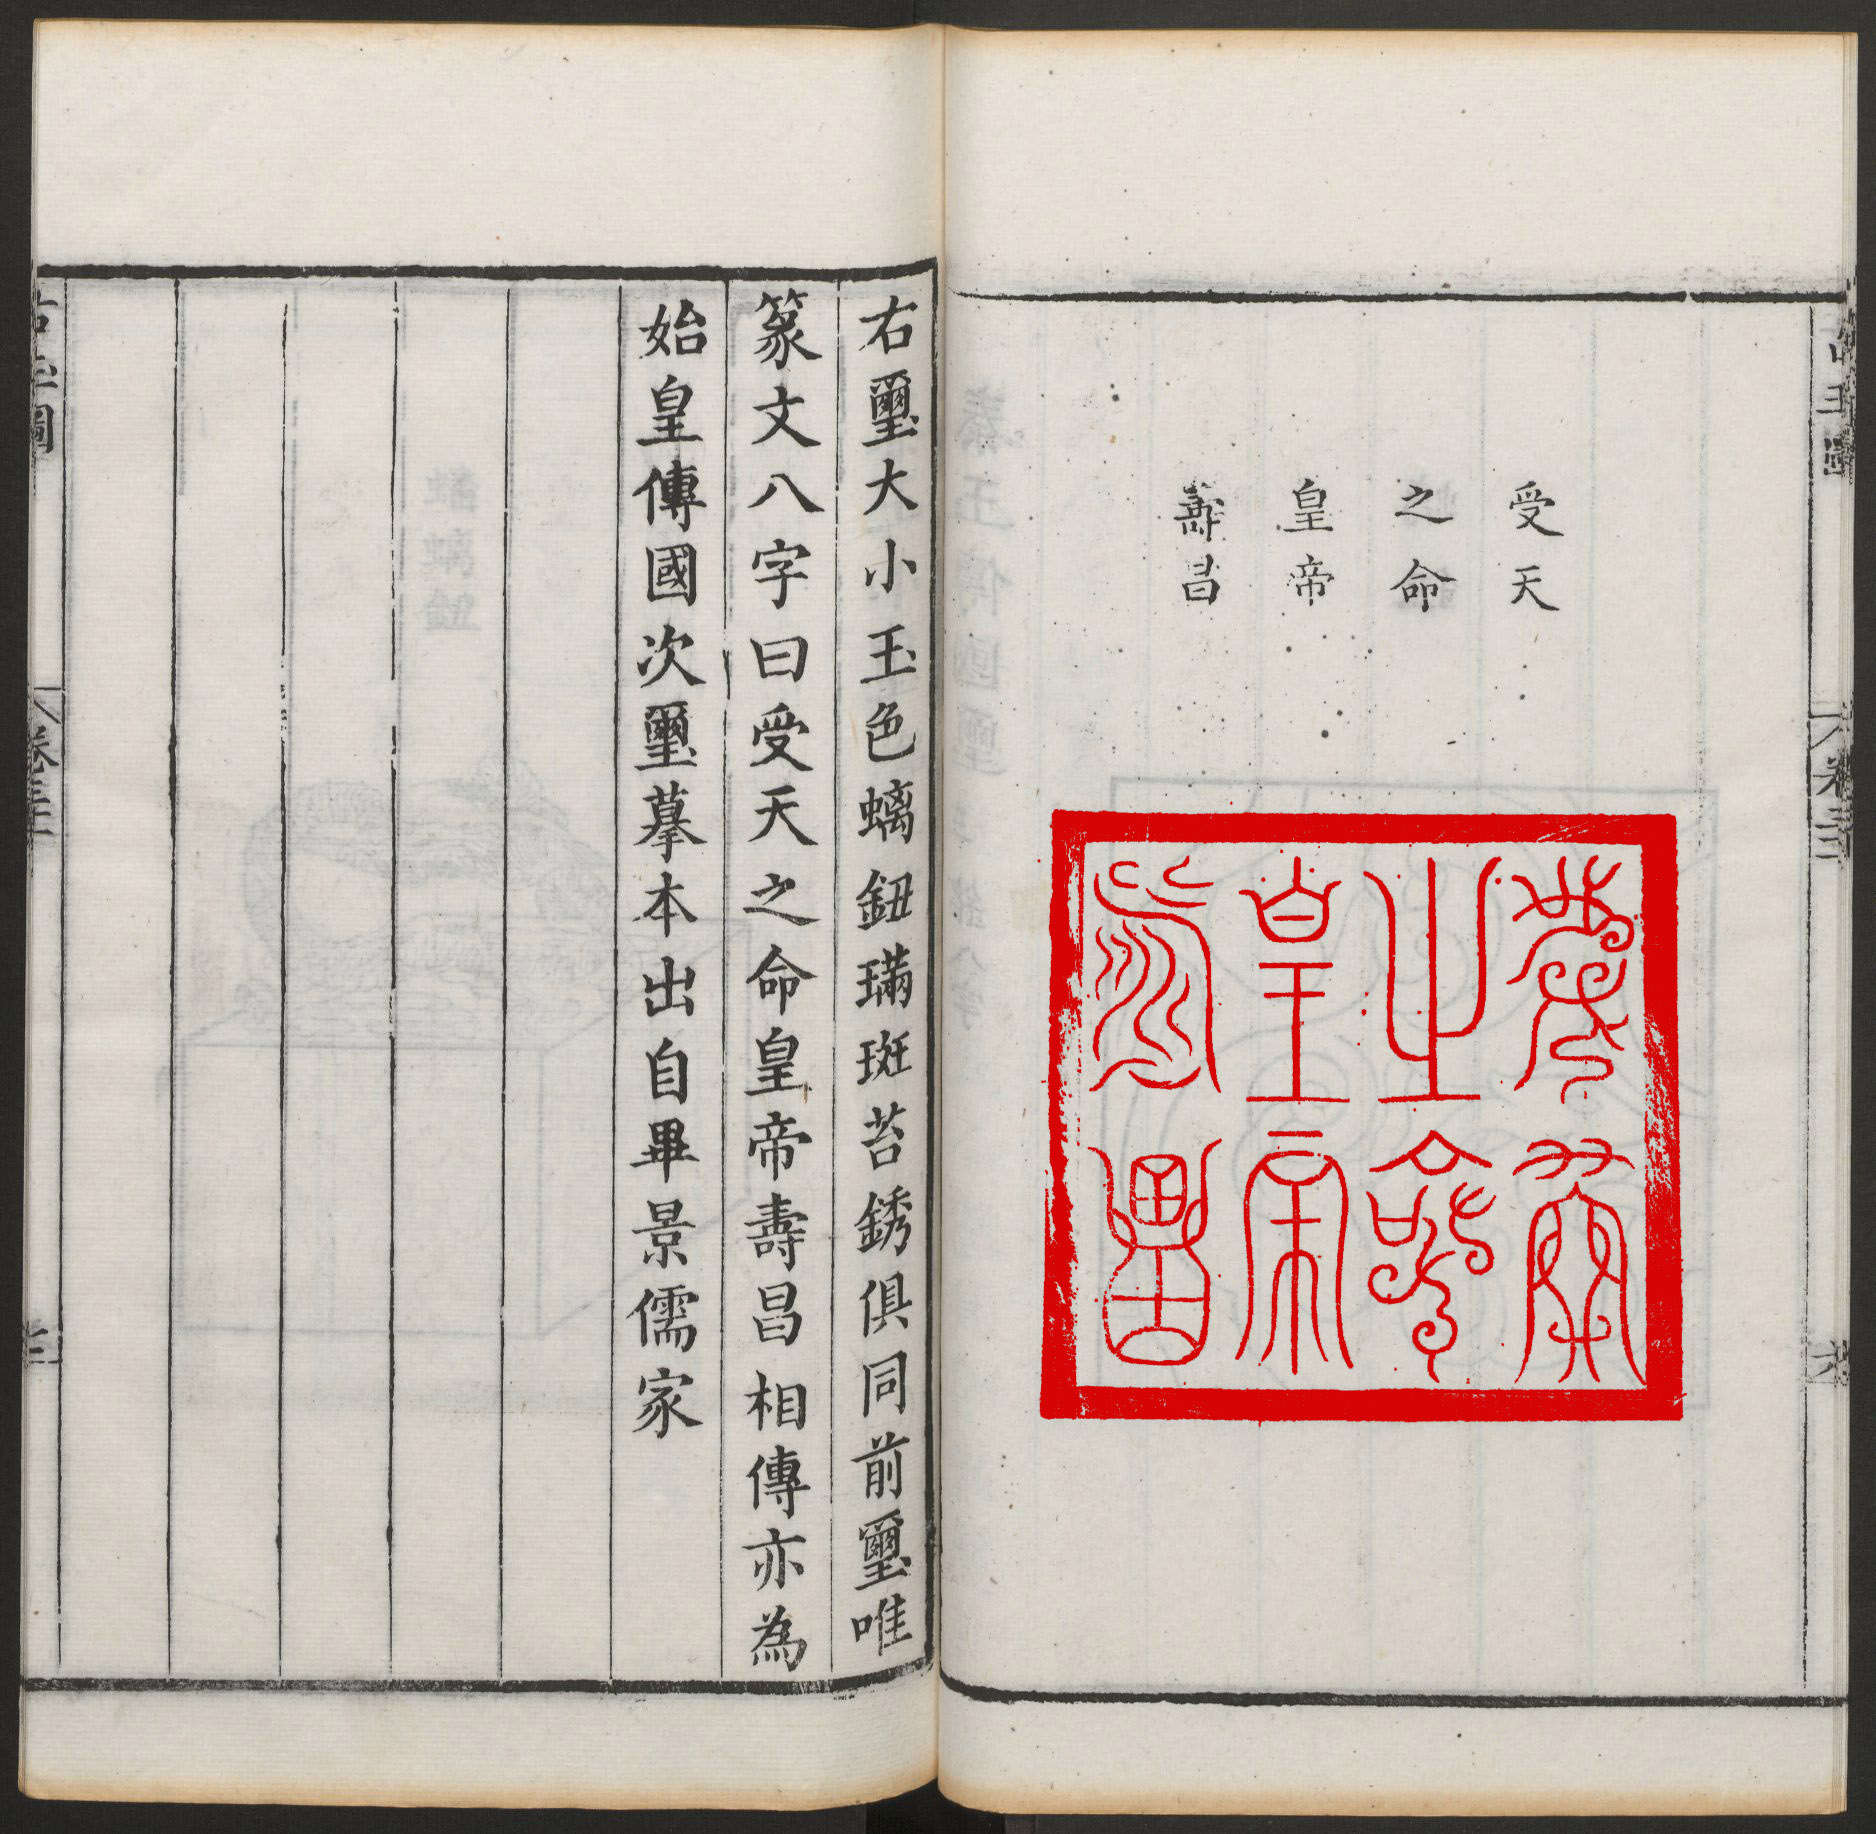 受天
之命
皇帝
壽昌
右璽大小玉色螭鈕璊斑苔銹俱同前璽唯
篆文八字曰受天之命皇帝壽昌相傳亦為
始皇傳國次璽摹本出自畢景儒家